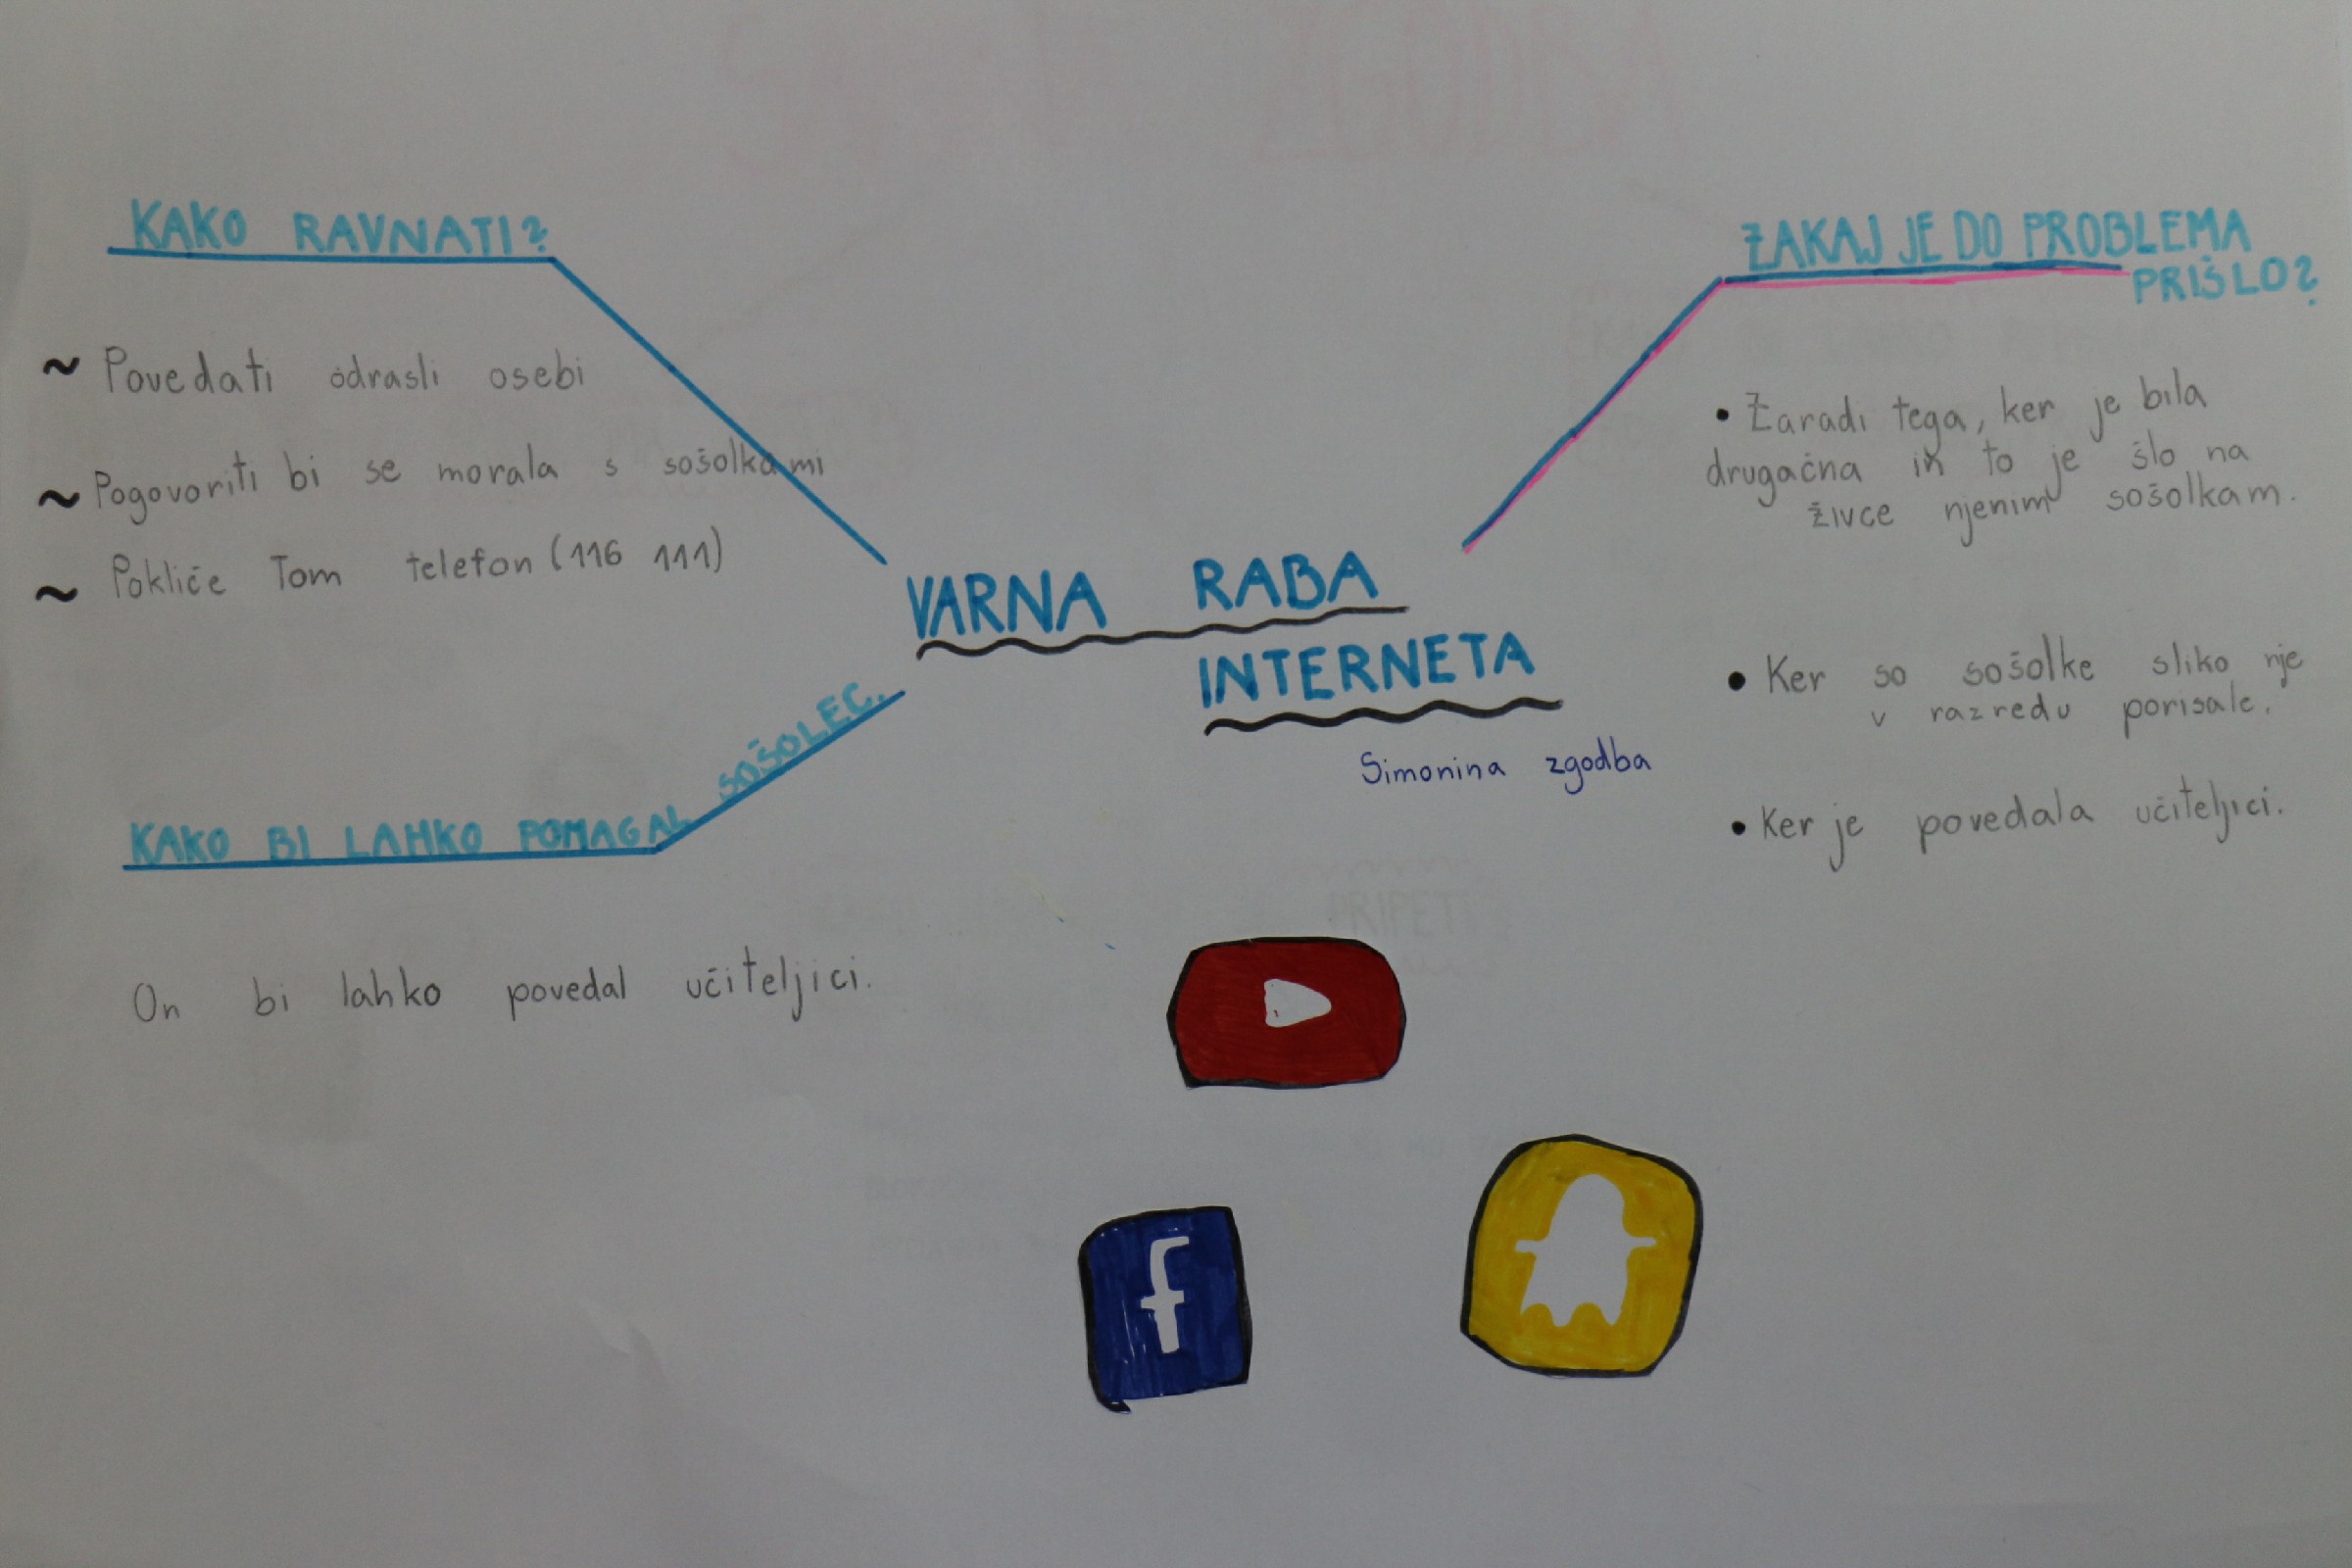 KAKO RAVNATI?
~ Povedati odrasli osebi
~ Pogovoriti bi se morala s sošolkami
~ Pokliče Tom telefon (116 111)
ZAKAJ JE DO PROBLEMA
PRIŠLO?
• Zaradi tega, ker je bila
drugačna in to je šlo na
živce njenim sošolkam.
• Ker so sošolke sliko nje
v razredu porisale.
• Ker je povedala učiteljici.
VARNA RABA
INTERNETA
Simonina zgodba
KAKO BI LAHKO POMAGAL SOŠOLEC.
On bi lahko povedal učiteljici.
f